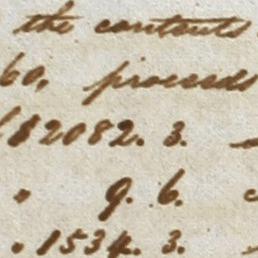 the contents
60, proceeds
£82082. 3.
" 9. 6.
" 1534. 3.